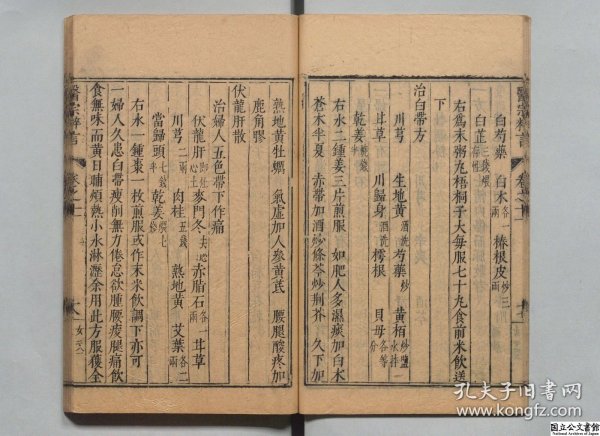 白芍藥　白术各一兩　椿根皮炒三兩
白芷
右爲末粥丸梧桐子大每服七十丸食前米飲送
下
治白帶方
川芎　生地黃酒洗　芍藥炒　黃柏
甘草　川歸身酒洗　樗根　貝母各等分
乾姜
右水二鍾姜三片煎服　如肥人多濕痰加白术
蒼术半夏　赤帶加酒炒條芩炒荊芥　久下加
熟地黃牡蠣　氣虛加人參黃芪　腰腿酸疼加
鹿角膠
伏龍肝散
治婦人五色帶下作痛
伏龍肝　麥門冬去心　赤脂石各一兩　甘草
川芎二兩　肉桂五錢　熟地黃　艾葉各二兩
當歸頭　乾姜
右水一鍾棗一枚煎服或作末米飲調下亦可
一婦人久患白帶瘦削無力倦怠欲睡腰痠腿痛飲
食無味面黃日晡煩熱小水淋瀝余用此方服獲全
卷之
孔夫子旧书网
www.kongfz.com
国立公文書館
National Archives of Japan